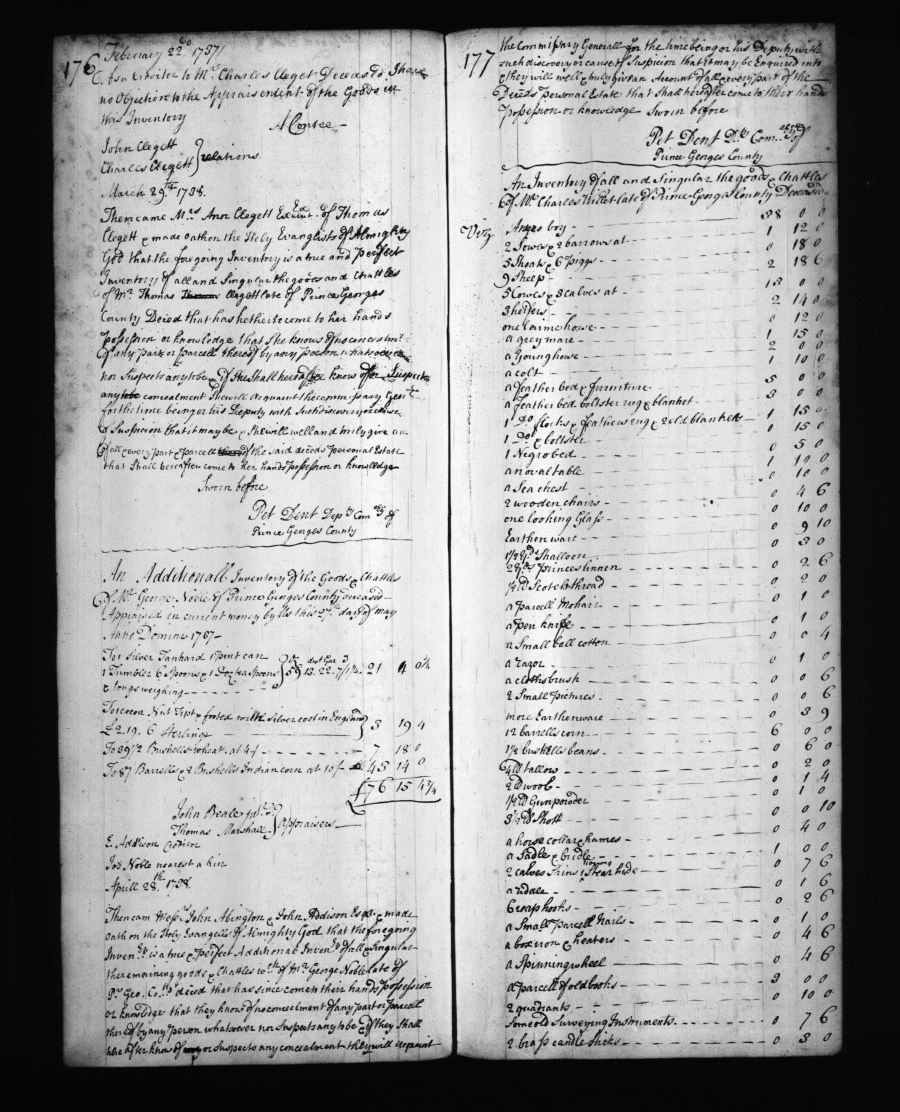 176
February 22do 1737/
As a Creditor to Mr Charles Clegett Deceased I have
no Objection to the Appraisendent of the Goods in
this Inventory
A Contee
John Clegett
Charles Clegett } relations
March 29th 1738.
Then came Mrs Ann Clegett of Thomas
Clegett & made oath on the Holy Evanglists of Almighty
God that the foregoing Inventory is a true and perfect
Inventory of all and Singular the goods and Chattles
of Mr Thomas Clegett late of Prince Georges
County Deced that has hetherto come to her hands
possession or knowledge that she knows of no concealmt
of any part or parcell thereof by any person whatsoever
nor Suspects any to be & if She Shall hereafter know of or Suspect
any to be concealment She will acquaint the commissary Genl
for the time being or his Deputy with Such discovery or cause
of Suspicion that it may be & She will well and truly give an
of all & every part & parcell of the said deceds personal Estate
that Shall hereafter come to her hands possession or knowledge
Sworn before
Pet Dent Depty Comry of
Prince Georges County
An Additionall Inventory of the Goods & Chattles
of Mr George Noble of Prince Georges County deceased
Appraised in current money by Us this 27th day of may
Anno Domini 1737
To 1 Silver Tankard 1 pint can
1 Tumbler 6 Spoons & 1 Doz tea Spoons
& tongs weighing 21 4 0¼
To cocoa Nut Tipt & footed with silver cost in England
£2.19.6 Sterlings 3 19 4
To 39½ Bushells wheat at 4/ 7 18 0
To 87 Barrells & 2 Bushells Indian corn at 10/ 45 14 0
£76 15 4¾
John Beale
Thomas Marshall } Appraisers
E. Addison Creditor
Jos Noble nearest a kin
Aprill 28th 1738.
Then cam Messrs John Abington & John Addison Esqs & made
Oath on the Holy Evangells of Almighty God that the foregoing
Invento is a true & perfect Additional Invento of all & Singular
the remaining goods & Chattles wch of Mr George Noble late of
Pr Geo. Coty deced that has since come to their hands possession
or knowledge that they know of no concealment of any part or parcell
thereof by any person whatsoever nor Suspects any to be & if they Shall
hereafter know of or Suspects any concealment they will acquaint
177
the Commissary Generall for the time being or his Deputy with
such discovery or cause of Suspicion that it may be Enquired into
& they will well & truly give an Account of all & every part of the
Deceds personal Estate that shall hereafter come to their hands
possession or knowledge Sworn before
Pet Dent Dty Comry of
Prince Georges County
An Inventory of all and Singular the goods & Chattles
of Mr Charles Willet late of Prince Georges County Deceased
Viz Negro boy 38 0 0
2 Sows & 2 barrows at 1 12 0
5 Shoats & 6 piggs 0 18 0
9 Sheep 2 18 6
5 Cowes & 3 calves at 13 0 0
3 heifers 2 14 0
one lame horse 0 12 0
a grey mare 1 15 0
a Young horse 2 0 0
a colt 1 10 0
a feather bed & furniture 5 0 0
a feather bed bolster rug & blanket 3 0 0
1 Do flocks & feathers rug & 2 old blankets 1 15 0
1 Do & bolster 0 15 0
1 Negro bed 0 5 0
a noval table 1 10 0
a Sea chest 0 10 0
2 wooden chairs 0 4 6
one looking Glass 0 10 0
Earthen ware 0 9 10
1½ yd Shalloon 0 3 0
2¾ yds Princes linnen 0 2 6
½ lb Scotch thread 0 2 0
a parcell Mohair 0 1 0
a pen knife 0 1 0
a Small ball cotton 0 0 4
a razor 0 1 0
a cloths brush 0 0 6
2 Small pictures 0 0 6
more Earthenware 0 3 9
12 barrells corn 6 0 0
1½ bushells beans 0 6 0
6 lb tallow 0 2 0
2 lb wool 0 1 4
1½ lb Gunpowder 0 1 0
3½ lb Shott 0 0 10
a horse collar & hames 0 4 0
a Sadle & bridle 1 0 0
2 calves Skins & 1 Stear hide 0 7 6
a ridle 0 1 6
6 reap hooks 0 2 6
a Small parcell Nails 0 1 0
a box iron & heaters 0 4 6
a Spinning wheel 0 4 6
a parcell of old books 3 0 0
2 quadrants 0 10 0
Some old Surveying Instruments 0 7 6
2 brass candle Sticks 0 3 0